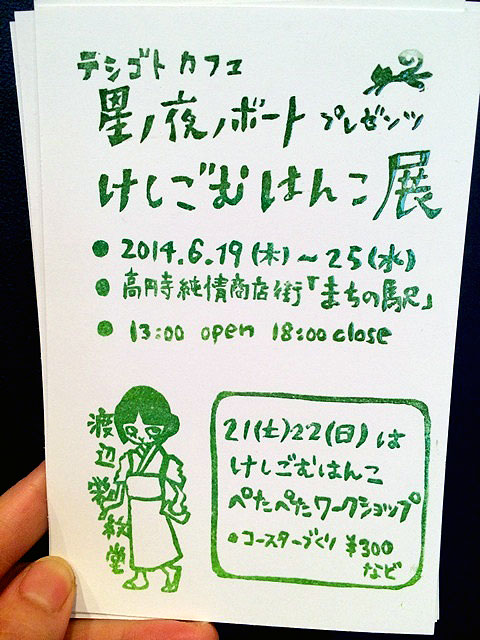 テシゴトカフェ
星ノ夜ノボート プレゼンツ
けしごむはんこ展
● 2014.6.19(木)～25(水)
● 高円寺純情商店街「まちの駅」
● 13:00 open 18:00 close
21(土)22(日)は
けしごむはんこ
ぺたぺたワークショップ
●コースターづくり ¥300
など
渡辺
紋堂